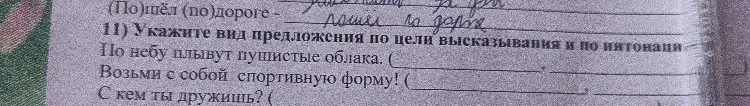 (По)шёл (по)дороге -
пошёл по дороге
11) Укажите вид предложения по цели высказывания и по интонации
По небу плывут пушистые облака. (
Возьми с собой спортивную форму! (
С кем ты дружишь? (